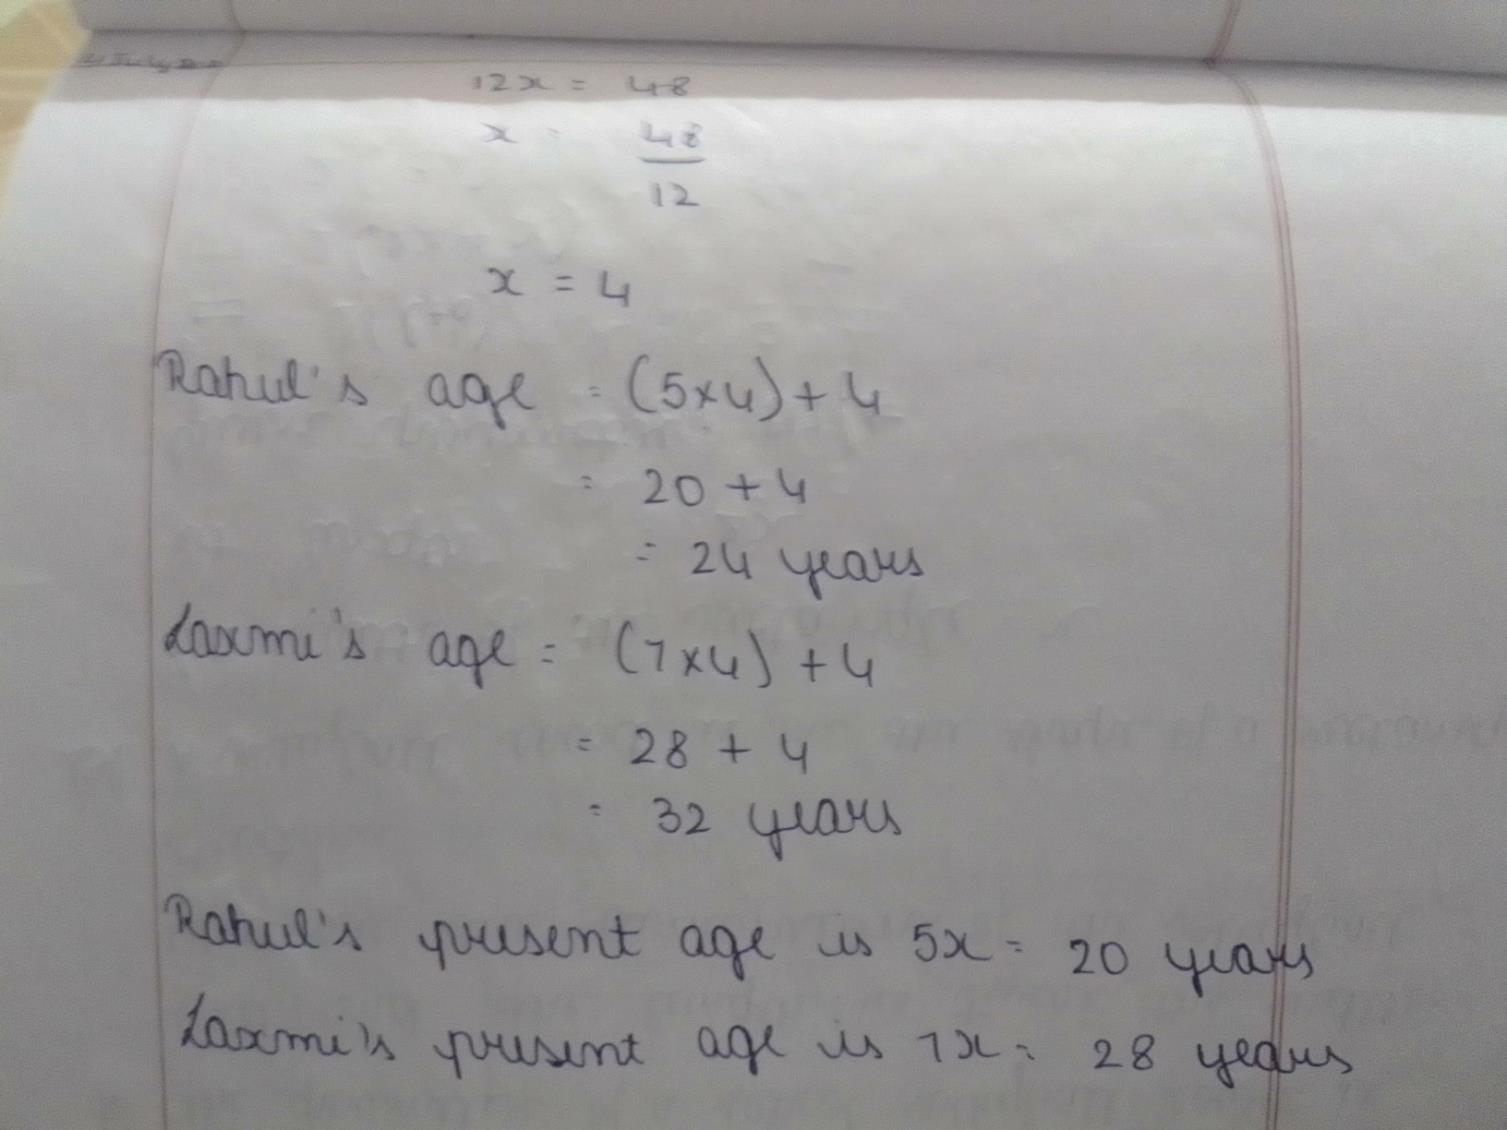 12x = 48
x = 48
12
x = 4
Rahul's age = (5×4) + 4
= 20 + 4
= 24 years
Laxmi's age = (7×4) + 4
= 28 + 4
= 32 years
Rahul's present age is 5x = 20 years
Laxmi's present age is 7x = 28 years